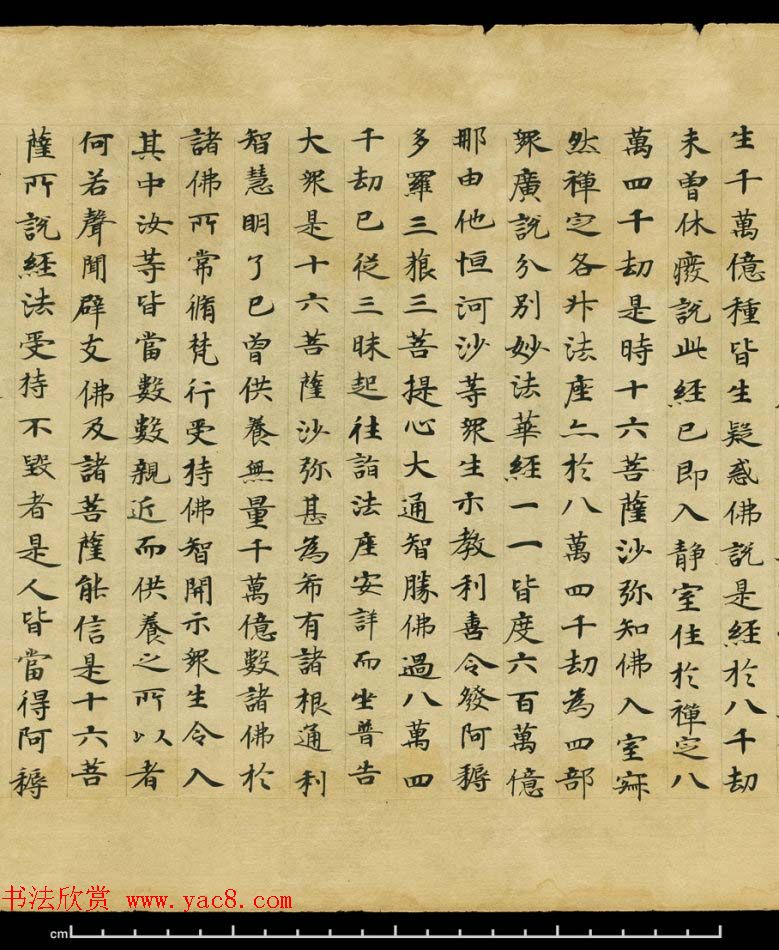 生千萬億種皆生疑惑佛說是經於八千劫
未曾休癈說此經已即入靜室住於禪定八
萬四千劫是時十六菩薩沙弥知佛入室寂
然禪定各昇法座亦於八萬四千劫為四部
衆廣說分別妙法華經一一皆度六百萬億
那由他恒河沙等衆生示教利喜令發阿耨
多羅三藐三菩提心大通智勝佛過八萬四
千劫已從三昧起往詣法座安詳而坐普告
大衆是十六菩薩沙弥甚為希有諸根通利
智慧明了已曾供養無量千萬億數諸佛於
諸佛所常脩梵行受持佛智開示衆生令入
其中汝等皆當數數親近而供養之所以者
何若聲聞辟支佛及諸菩薩能信是十六菩
薩所說經法受持不毀者是人皆當得阿耨
书法欣赏 www.yac8.com
cm